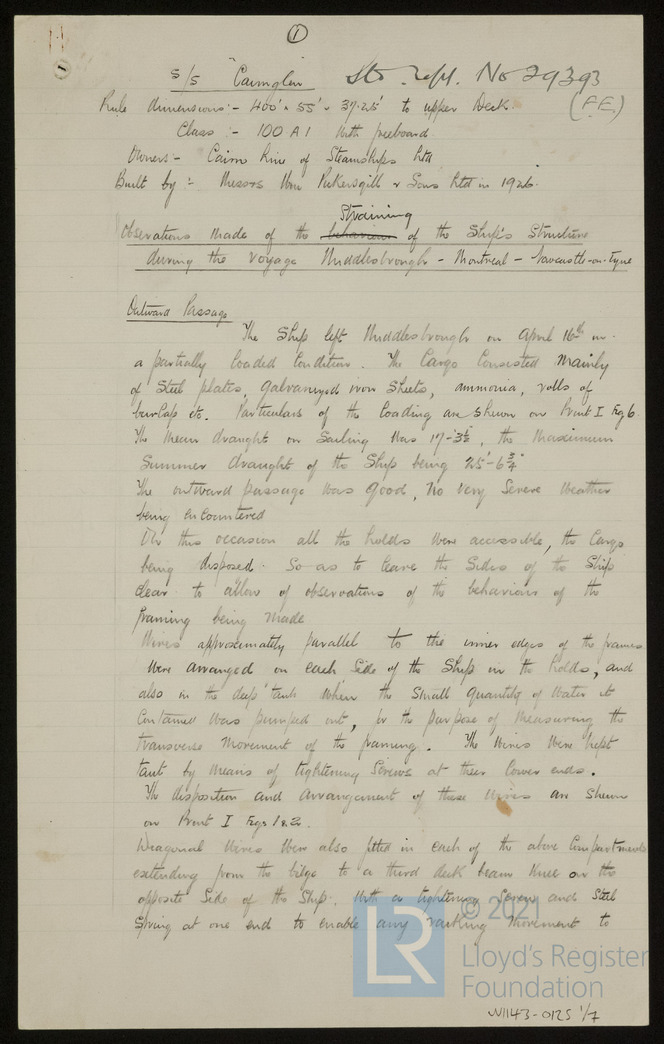 ①
S/S "Cairnglen" Sto. Rept. No 29393
(F.E.)
Rule dimensions:- 400' x 55' x 37.25' to upper Deck.
Class :- 100 A1 With freeboard
Owners:- Cairn Line of Steamships Ltd
Built by :- Messrs Wm Pickersgill & Sons Ltd in 1926.
Straining
Observations made of the behaviour of the Ship's Structure
during the voyage Middlesbrough - Montreal - Newcastle-on-Tyne
Outward Passage
The Ship left Middlesbrough on April 16th in
a partially loaded Condition. The Cargo Consisted mainly
of Steel plates, galvanized iron Sheets, ammonia, rolls of
burlap etc. Particulars of the loading are shewn on Print I Fig 6.
The Mean draught on Sailing Was 17'-3½", the Maximum
Summer draught of the Ship being 25'-6¾"
The outward passage was good, no very Severe Weather
being encountered
On this occasion all the holds Were accessible, the Cargo
being disposed So as to leave the Sides of the Ship
clear to allow of observations of the behaviour of the
framing being made
Wires approximately parallel to the inner edges of the frames
Were arranged on each Side of the Ship in the holds, and
also in the deep tank When the Small quantity of Water it
Contained Was pumped out, for the purpose of Measuring the
transverse Movement of the framing. The Wires Were kept
taut by means of tightening Screws at their lower ends.
The disposition and arrangement of these Wires are Shewn
on Print I Figs 1 & 2.
Diagonal Wires Were also fitted in each of the above Compartments
extending from the bilge to a third deck beam Knee on the
opposite Side of the Ship. With a tightening Screw and Steel
Spring at one end to enable any racking Movement to
LR
© 2021
Lloyd's Register
Foundation
W1143-0125 1/7